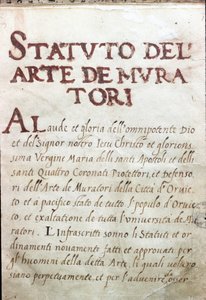 STATUTO DEL'
ARTE DE MVRA
TORI
A Laude et gloria dell'omnipotente Dio
et del Signor nostro Iesu Christo et glorions
sima Vergine Maria delli santi Apostoli et delli
santi Quattro Coronati Protettori, et Defenso
ri dell'Arte de Muratori della Città d'Oruie
to, et a pacifico stato de tutto'l popolo d'Oruie
to, et exaltatione de tutta l'Vniuersità de Mu
ratori. L'infrascritti sonno li Statuti et or
dinamenti nouamente fatti et approuati per
gl'huomini della detta Arte, li quali uolseno
siano perpetuamente, et per l'aduenire osser